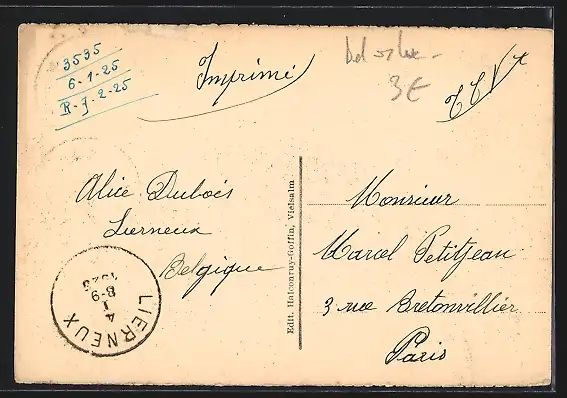 3535
6-1-25
R-J-2-25
Imprimé
3€
T C V x
Alice Dubois
Lierneux
Belgique
LIERNEUX
4
1
8-9
Edit. Halconruy-Goffin, Vielsalm
Monsieur
Marcel Petitjean
3 rue Bretonvillier
Paris